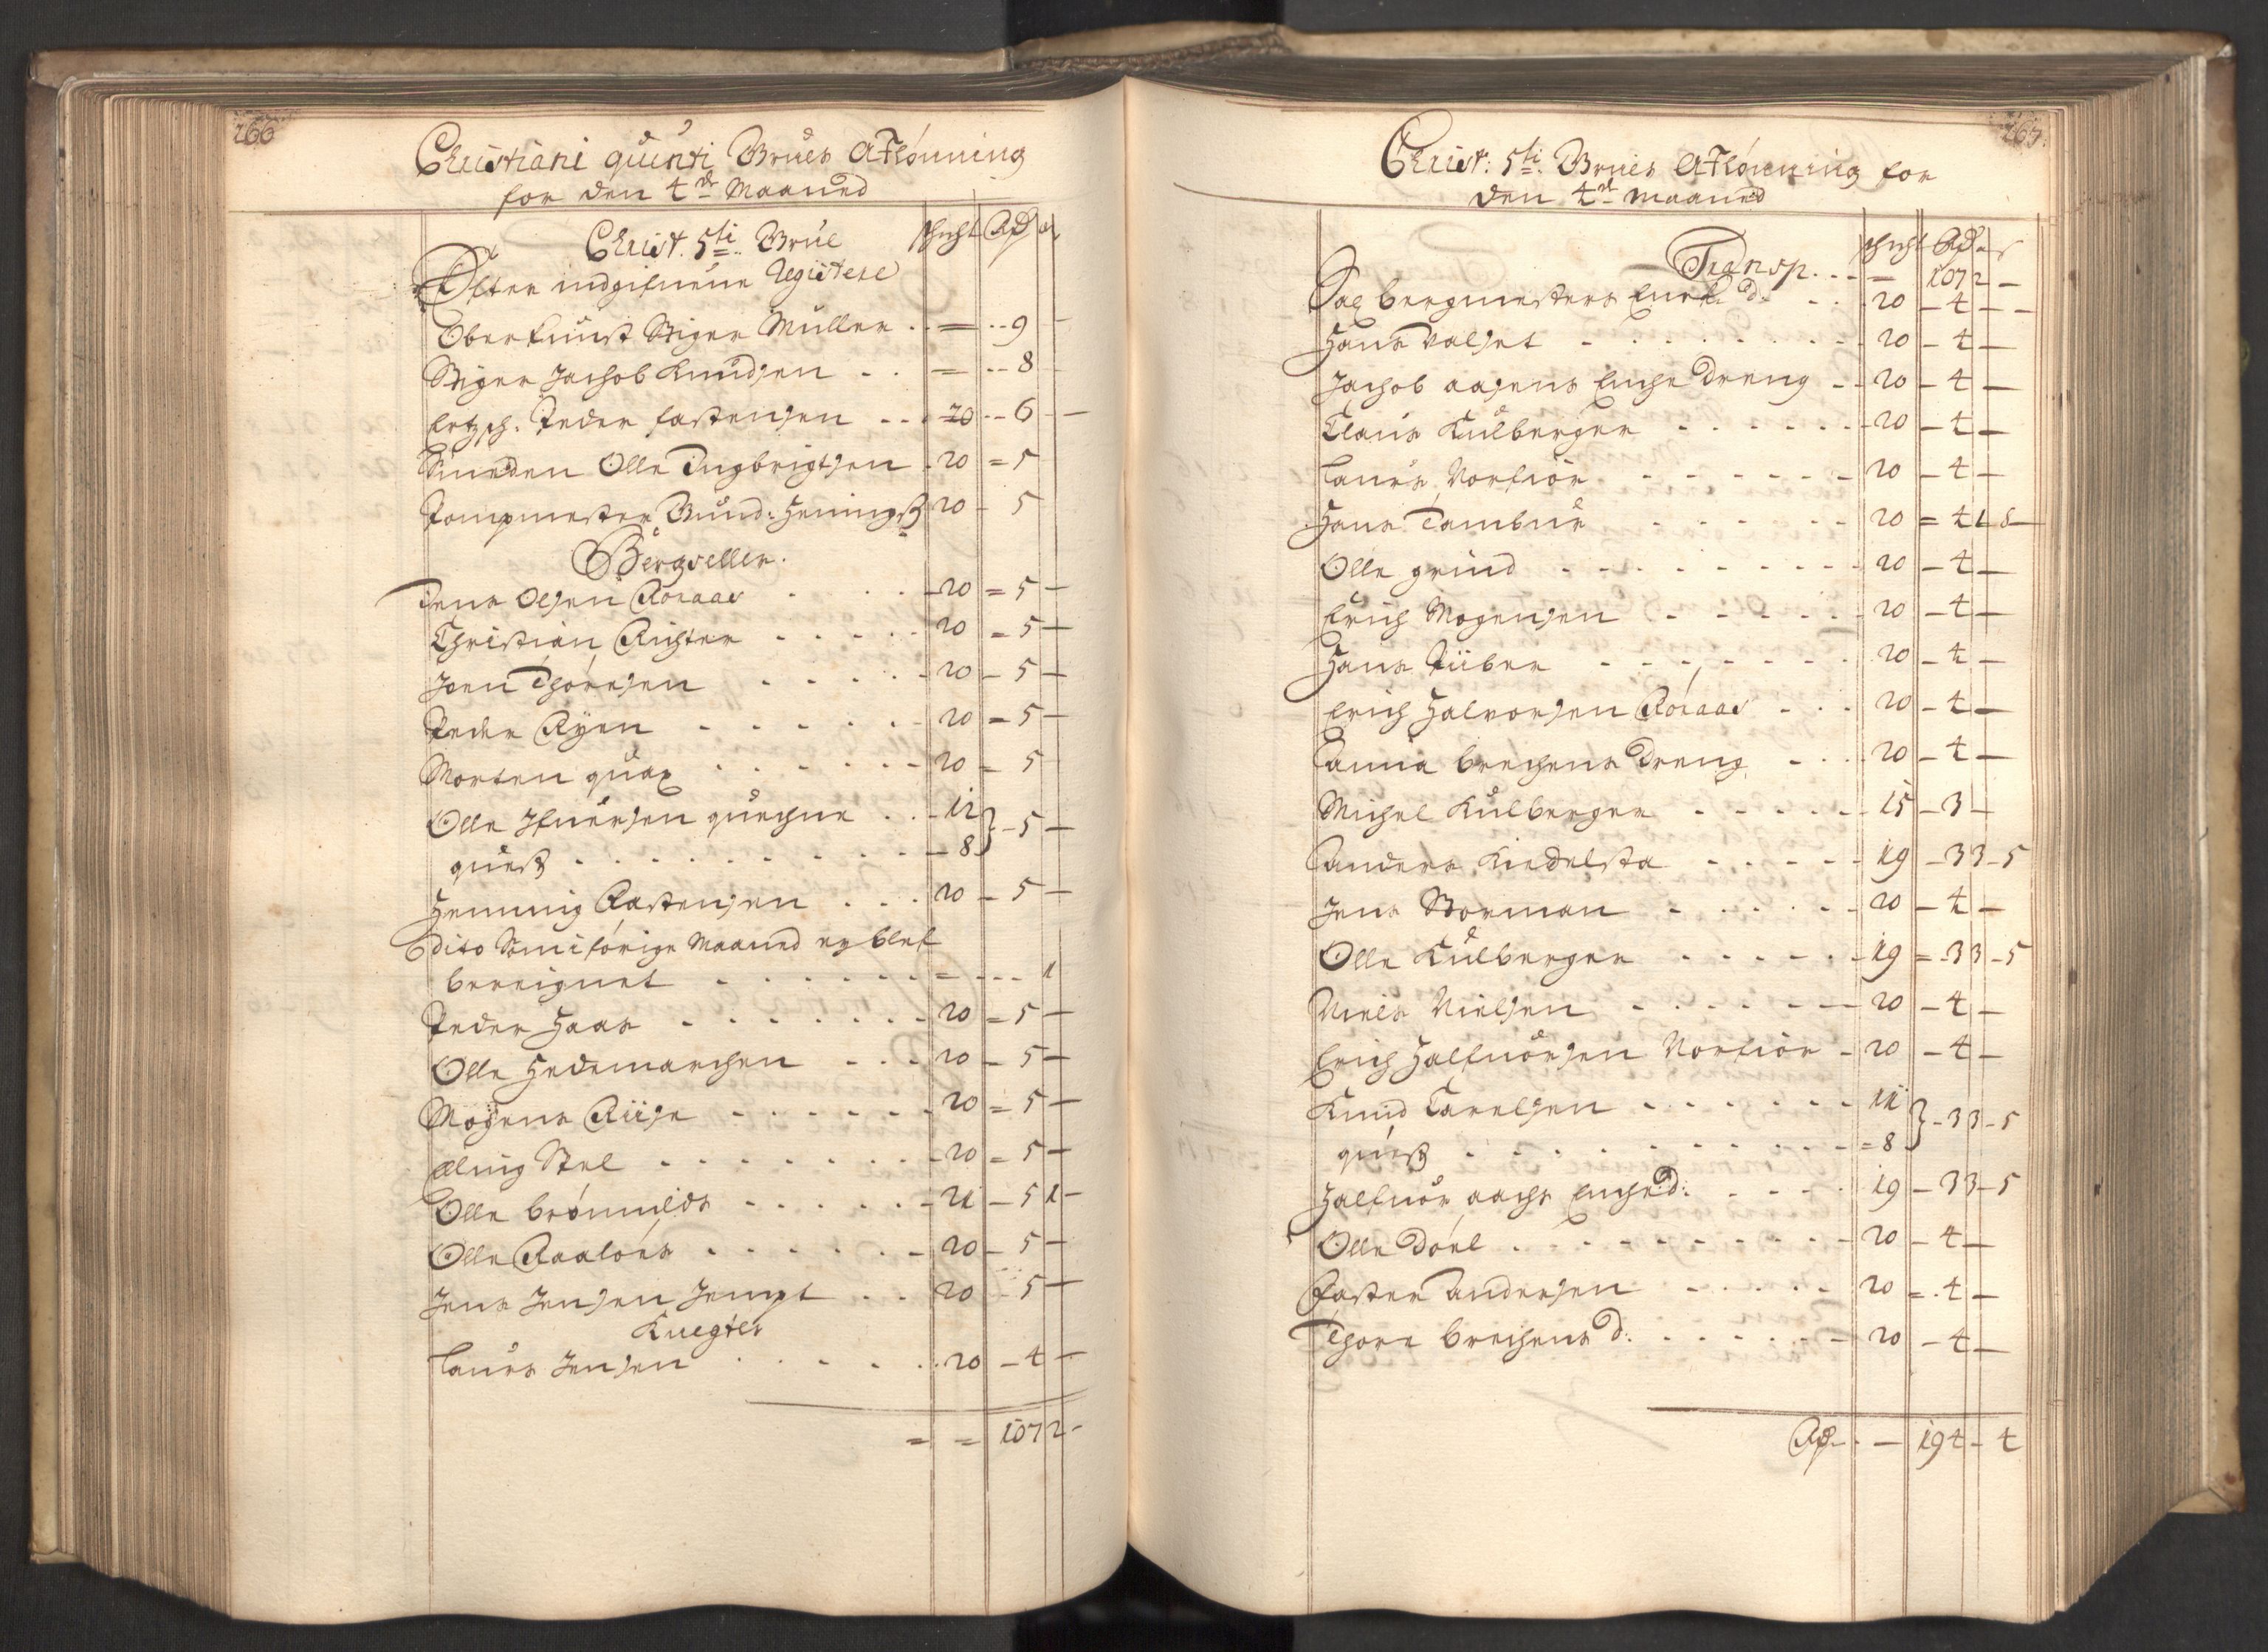 266
Christiani quinti Grues Aflönning
for den 4de Maaned
Christ. 5ti Grue
schicht Rdr ort
Efter indgifuene Registere
Oberkunst Stiger Müller . . = - - 9 -
Stiger Jachob Knudsen . . = - - 8 -
Ertzsch. Peder Fastensen . . 20 - - 6 -
Smeden Olle Ingbrigtsen - 20 = 5
Pompmester Gund: Heningss 20 - 5
Bergseller.
Jens Olsen Röraas . . . 20 = 5 -
Christian Richter - - - - 20 = 5 -
Joen Thoresen - - - - 20 - 5 -
Peder Ryen - - - - - 20 = 5 -
Morten quax - - - - - 20 - 5
Olle Ifuersen quechne . . 12 } - 5 -
quest - - - - - - - - 8
Henning Rastensen . . . 20 - 5 -
dito Som i forige Maaned ey blef
bereignet - - - - - - = - - - 1
Peder Haas - - - - - - 20 = 5 -
Olle Hedemarchen - - - 20 - 5 -
Mogens Riise - - - - - 20 = 5 -
Eling Stel - - - - - - 20 = 5 -
Olle brömilds - - - - - 21 - 5 1 -
Olle Raalöes - - - - - 20 - 5 -
Jens Jensen Jempt . . 20 - 5 -
Knegter
Laurs Jensen - - - - 20 - 4 -
= = 107 2 -
267.
Christ: 5ti Grues Aflönning for
den 4de Maaned
schicht Rdr ort s
Transp. - - - 107 2 -
Sal bergmesters Enke d. - . 20 - 4 - -
Hans Valset - - - - - - 20 - 4 -
Jachob aasens Enche Dreng - - 20 - 4 -
Claus Kulberger - - - - - 20 - 4 -
Laurs Norfiör - - - - - - 20 - 4 -
Hans Tambur - - - - - 20 = 4 1 8 -
Olle grind - - - - - - - 20 - 4 -
Erich Mogensen - - - - - 20 - 4 -
Hans Piiber - - - - - - 20 - 4 -
Erich Halvorsen Röraas - - . 20 - 4 -
Tamis brechens Dreng. - . . 20 - 4 -
Michel Kulberger - - - - - 15 - 3 -
Anders Kiedelsta - - - - - 19 - 3 3 - 5
Jens Storman - - - - - - 20 - 4 -
Olle Kulberger - - - - - - 19 = 3 3 - 5
Niels Nielsen - - - - - - 20 - 4 -
Erich Halfuorsen Norfiör - 20 - 4 -
Knud Carelsen - - - - - - 11 } - 3 3 - 5
quest - - - - - - - - = 8
Halfuor aachs Enche d: - - - 19 - 3 3 - 5
Olle döel . - - - - - - - - 20 - 4 -
Fasten Andersen - - - - - 20 = . 4 -
Thore brechens d: - - - - - 20 - 4 -
Rdr - . - 194 - 4